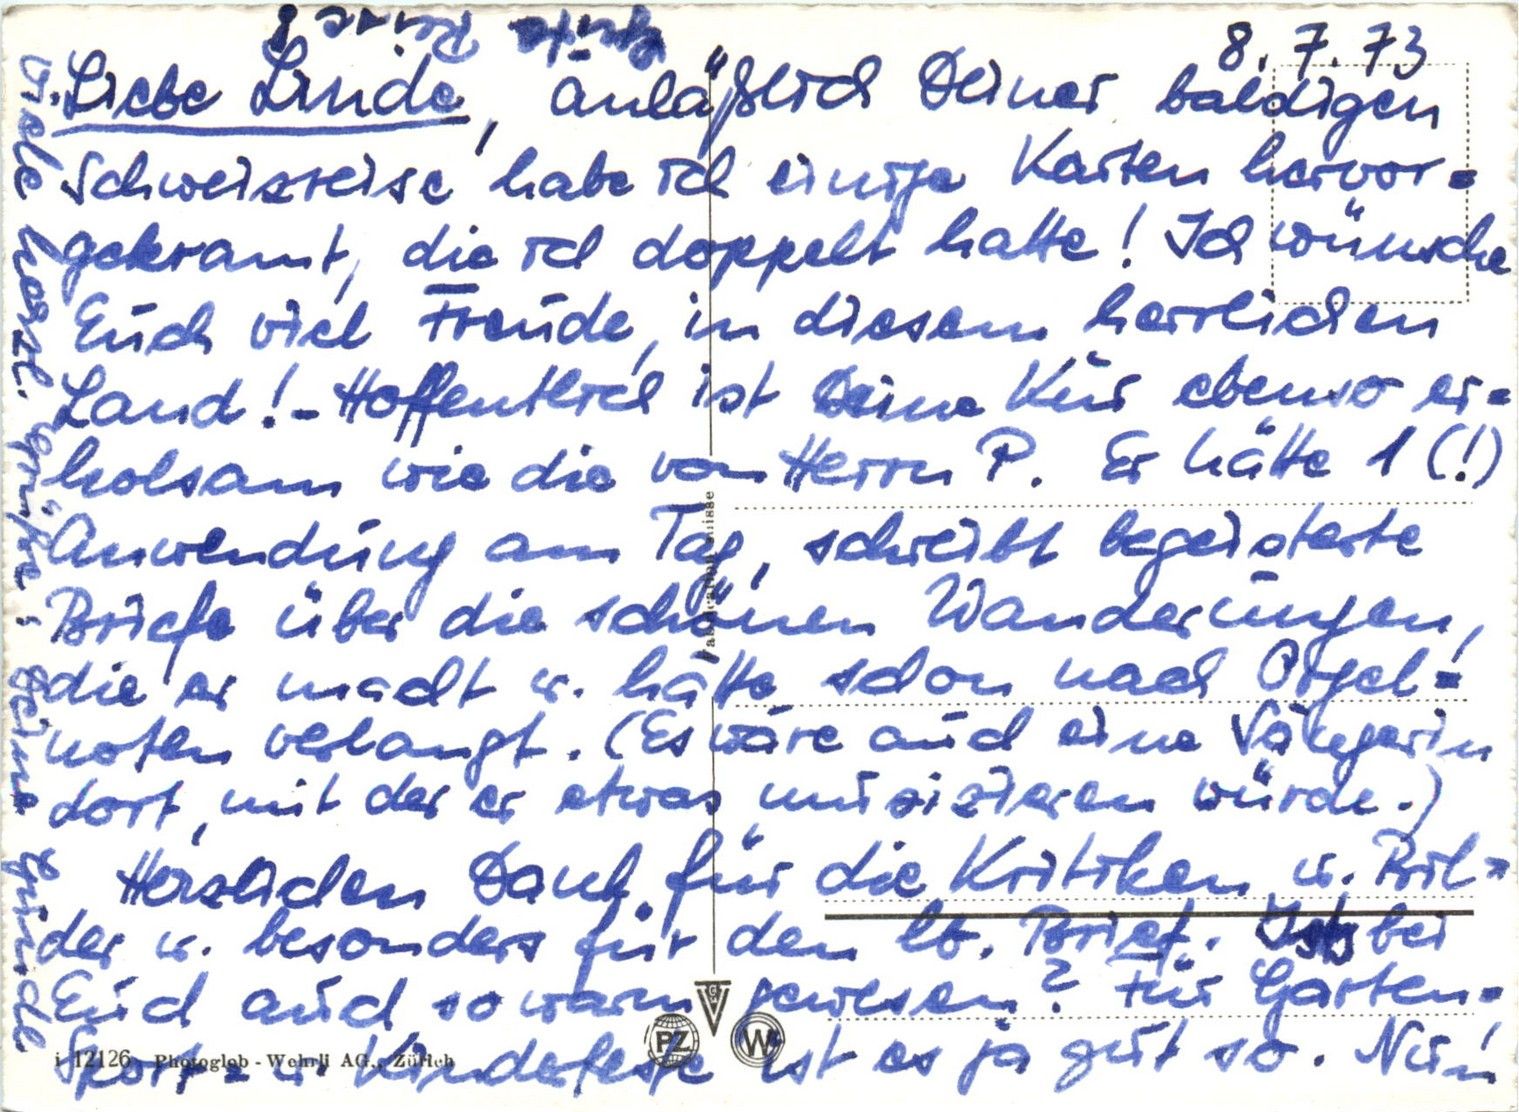 8.7.73
Liebe Linde, anläßlich Deiner baldigen
Schweizreise habe ich einige Karten hervor=
gekramt, die ich doppelt hatte! Ich wünsche
Euch viel Freude, in diesem herrlichen
Land! - Hoffentlich ist Deine Kur ebenso er=
holsam wie die von Herrn P. Er hätte 1 (!)
Anwendung am Tag, schreibt begeisterte
Briefe über die schönen Wanderungen,
die er macht u. hätte schon nach Orgel=
noten verlangt. (Es wäre auch eine Sängerin
dort, mit der er etwas musizieren würde.)
Herzlichen Dank für die Kritiken u. Bil=
der u. besonders für den lb. Brief. Ists bei
Euch auch so warm gewesen? Für Garten=
Sport= u. Kinderfeste ist es ja gut so. Nun
viele herzl. Grüße, Deine
gute Reise!
Fabrication Suisse
PZ
W
i 12126 Photoglob - Wehrli AG., Zürich